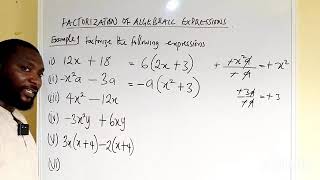 FACTORIZATION OF ALGEBRAIC EXPRESSIONS
Example 1 Factorize the following expressions
(i) 12x + 18 = 6(2x + 3)
(ii) -x²a - 3a = -a(x² + 3)
(iii) 4x² - 12x
(iv) -3x²y + 6xy
(v) 3x(x+4) - 2(x+4)
(vi)
+ +x²a/+a = +x²
+3a/+a = +3